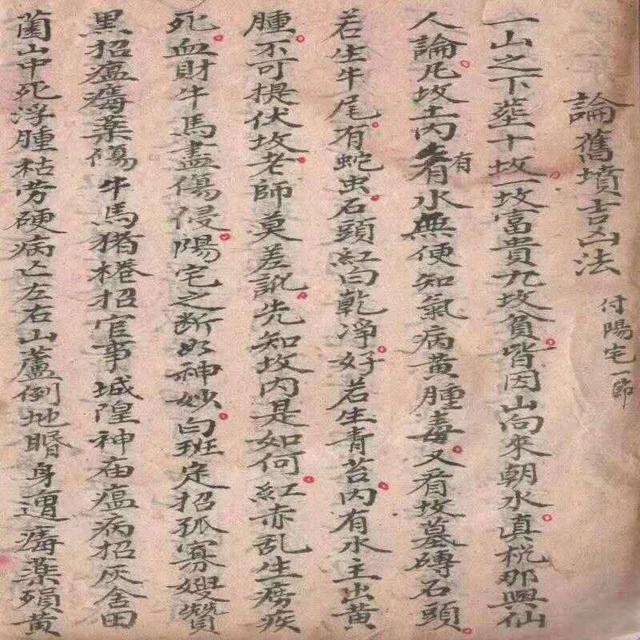 論舊墳吉凶法
付陽宅一節
一山之下葬十坟一坟富貴九坟貧皆因山尚來朝水真梘那與仙
人論凡坟土内有有水無便知氣病黃腫毒又看坟墓磚石頭
若生牛尾有蛇虫石頭紅白乾净好若生青苔内有水主出黃
腫不可提伏坟老師莫差訛先知坟内是如何紅赤乱生癆疾
死血財牛馬盡傷侵陽宅之断如神妙白班定招孤寡嫂
黑招瘟𤸷葉傷牛馬猪樁招官事城隍神庙瘟病招灰含田
蘭山中死浮腫枯劳硬病亡左右山蘆倒地腊身逥𤸷葉頭黃